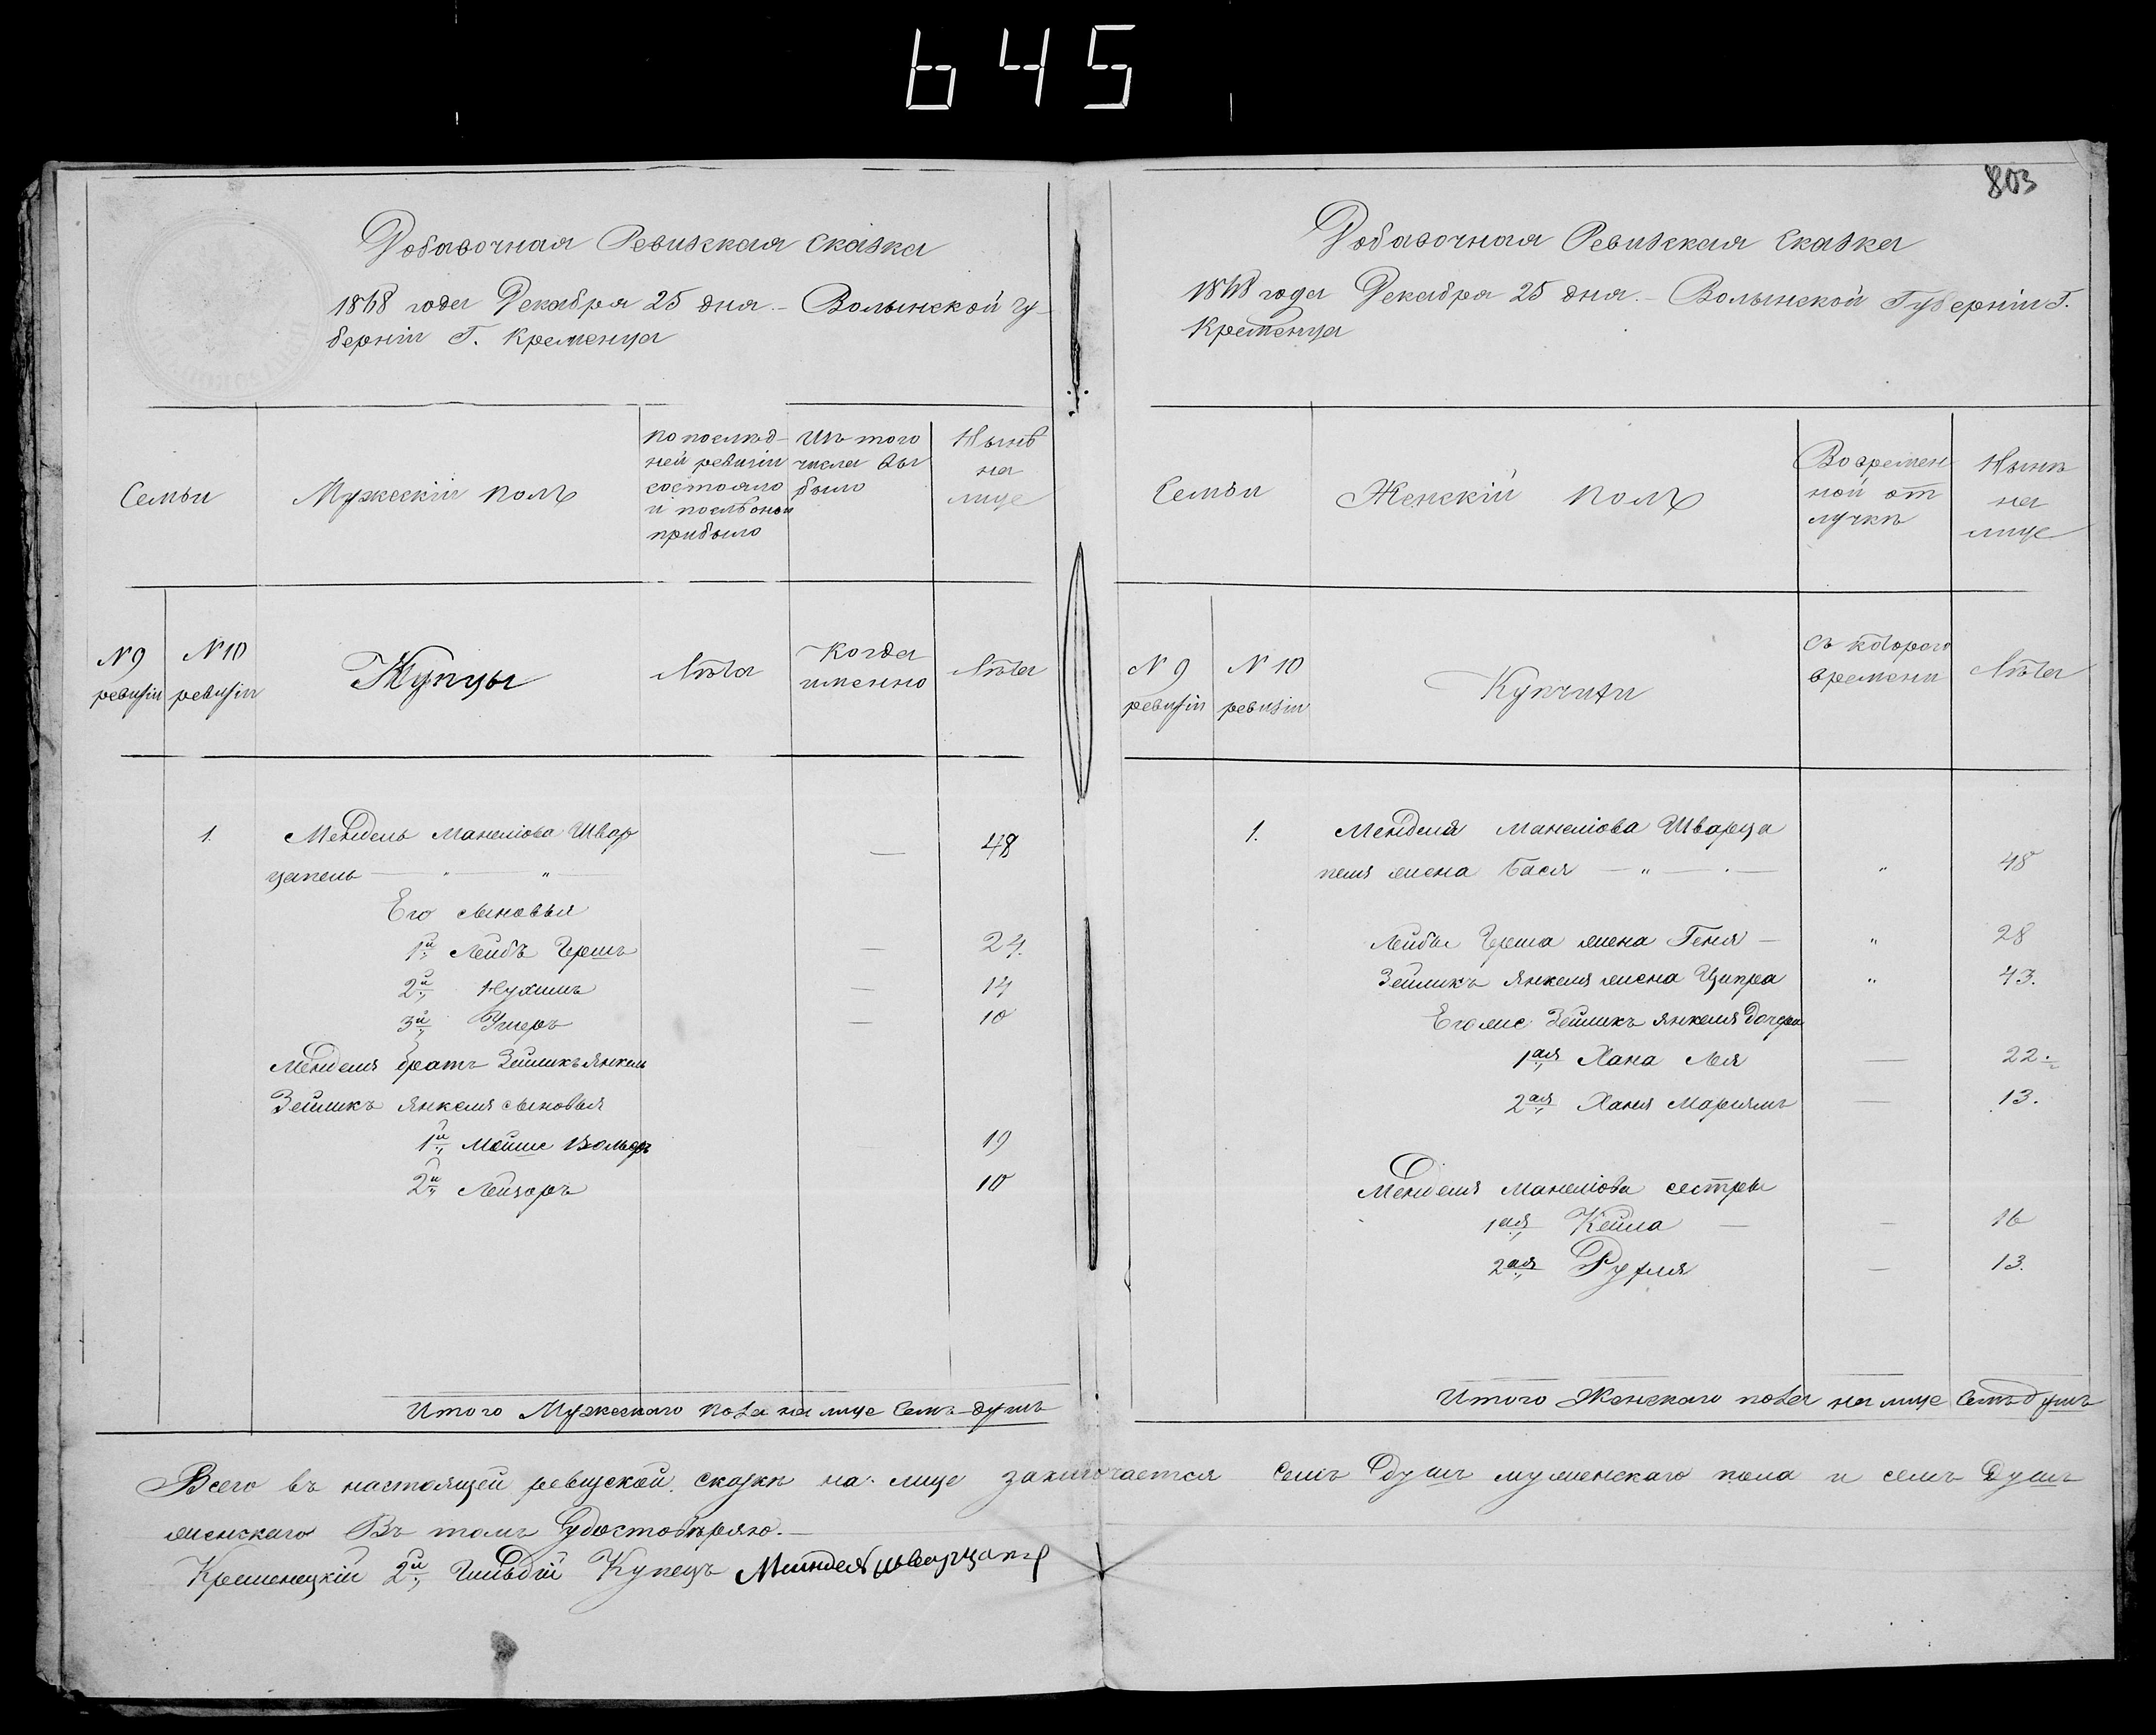 645
803
Добавочная Ревизкая Сказка
1868 года Декабря 25 дня. – Волынской Гу-
берніи Г. Кременца
Семьи
Мужескій полъ
По послѣд-
ней ревизіи
состояло
и послѣ оной
прибыло
Изъ того
числа вы
было
Нынѣ
на
лице
№ 9
ревизіи
№ 10
ревизіи
Купцы
Лѣта
Когда
именно
Лѣта
1. Мендель Манеліова Швар
цапель — " — " — 48
Его сыновья
1й Лейбъ Гершъ — 24.
2й Нухимъ — 14
3й Ушеръ — 10
Менделя братъ Зейликъ Янкель
Зейликъ Янкеля сыновья
1й Мойше Вольфъ 19
2й Лейзоръ 10
Итого Мужескаго пола на лице Семь душъ
Добавочная Ревизкая Сказка
1868 года Декабря 25 дня. – Волынской Губерніи Г.
Кременца
Семьи
Женскій полъ
Во времен
ной от
лучкѣ
Нынѣ
на
лице
№ 9
ревизіи
№ 10
ревизіи
Купчихи
Съ котораго
времени
Лѣта
1. Менделя Манеліова Шварца
пеля жена Бася — " — " 48
Лейбы Герша жена Геня — " 28
Зейликъ Янкеля жена Ципра " 43.
Его же Зейликъ Янкеля дочери
1ая Хана Лея — 22.
2ая Ханя Марьямъ — 13.
Менделя Манеліова сестры
1ая Кейла — — 16
2ая Рухля — 13.
Итого Женскаго пола на лице Семь душъ
Всего въ настоящей ревизской сказкѣ на лице заключается Семь душъ мужескаго пола и семь душъ
женскаго Въ томъ Удостовѣряю. –
Кременецкій 2й Гильдіи Купецъ Мендель Шварцапель